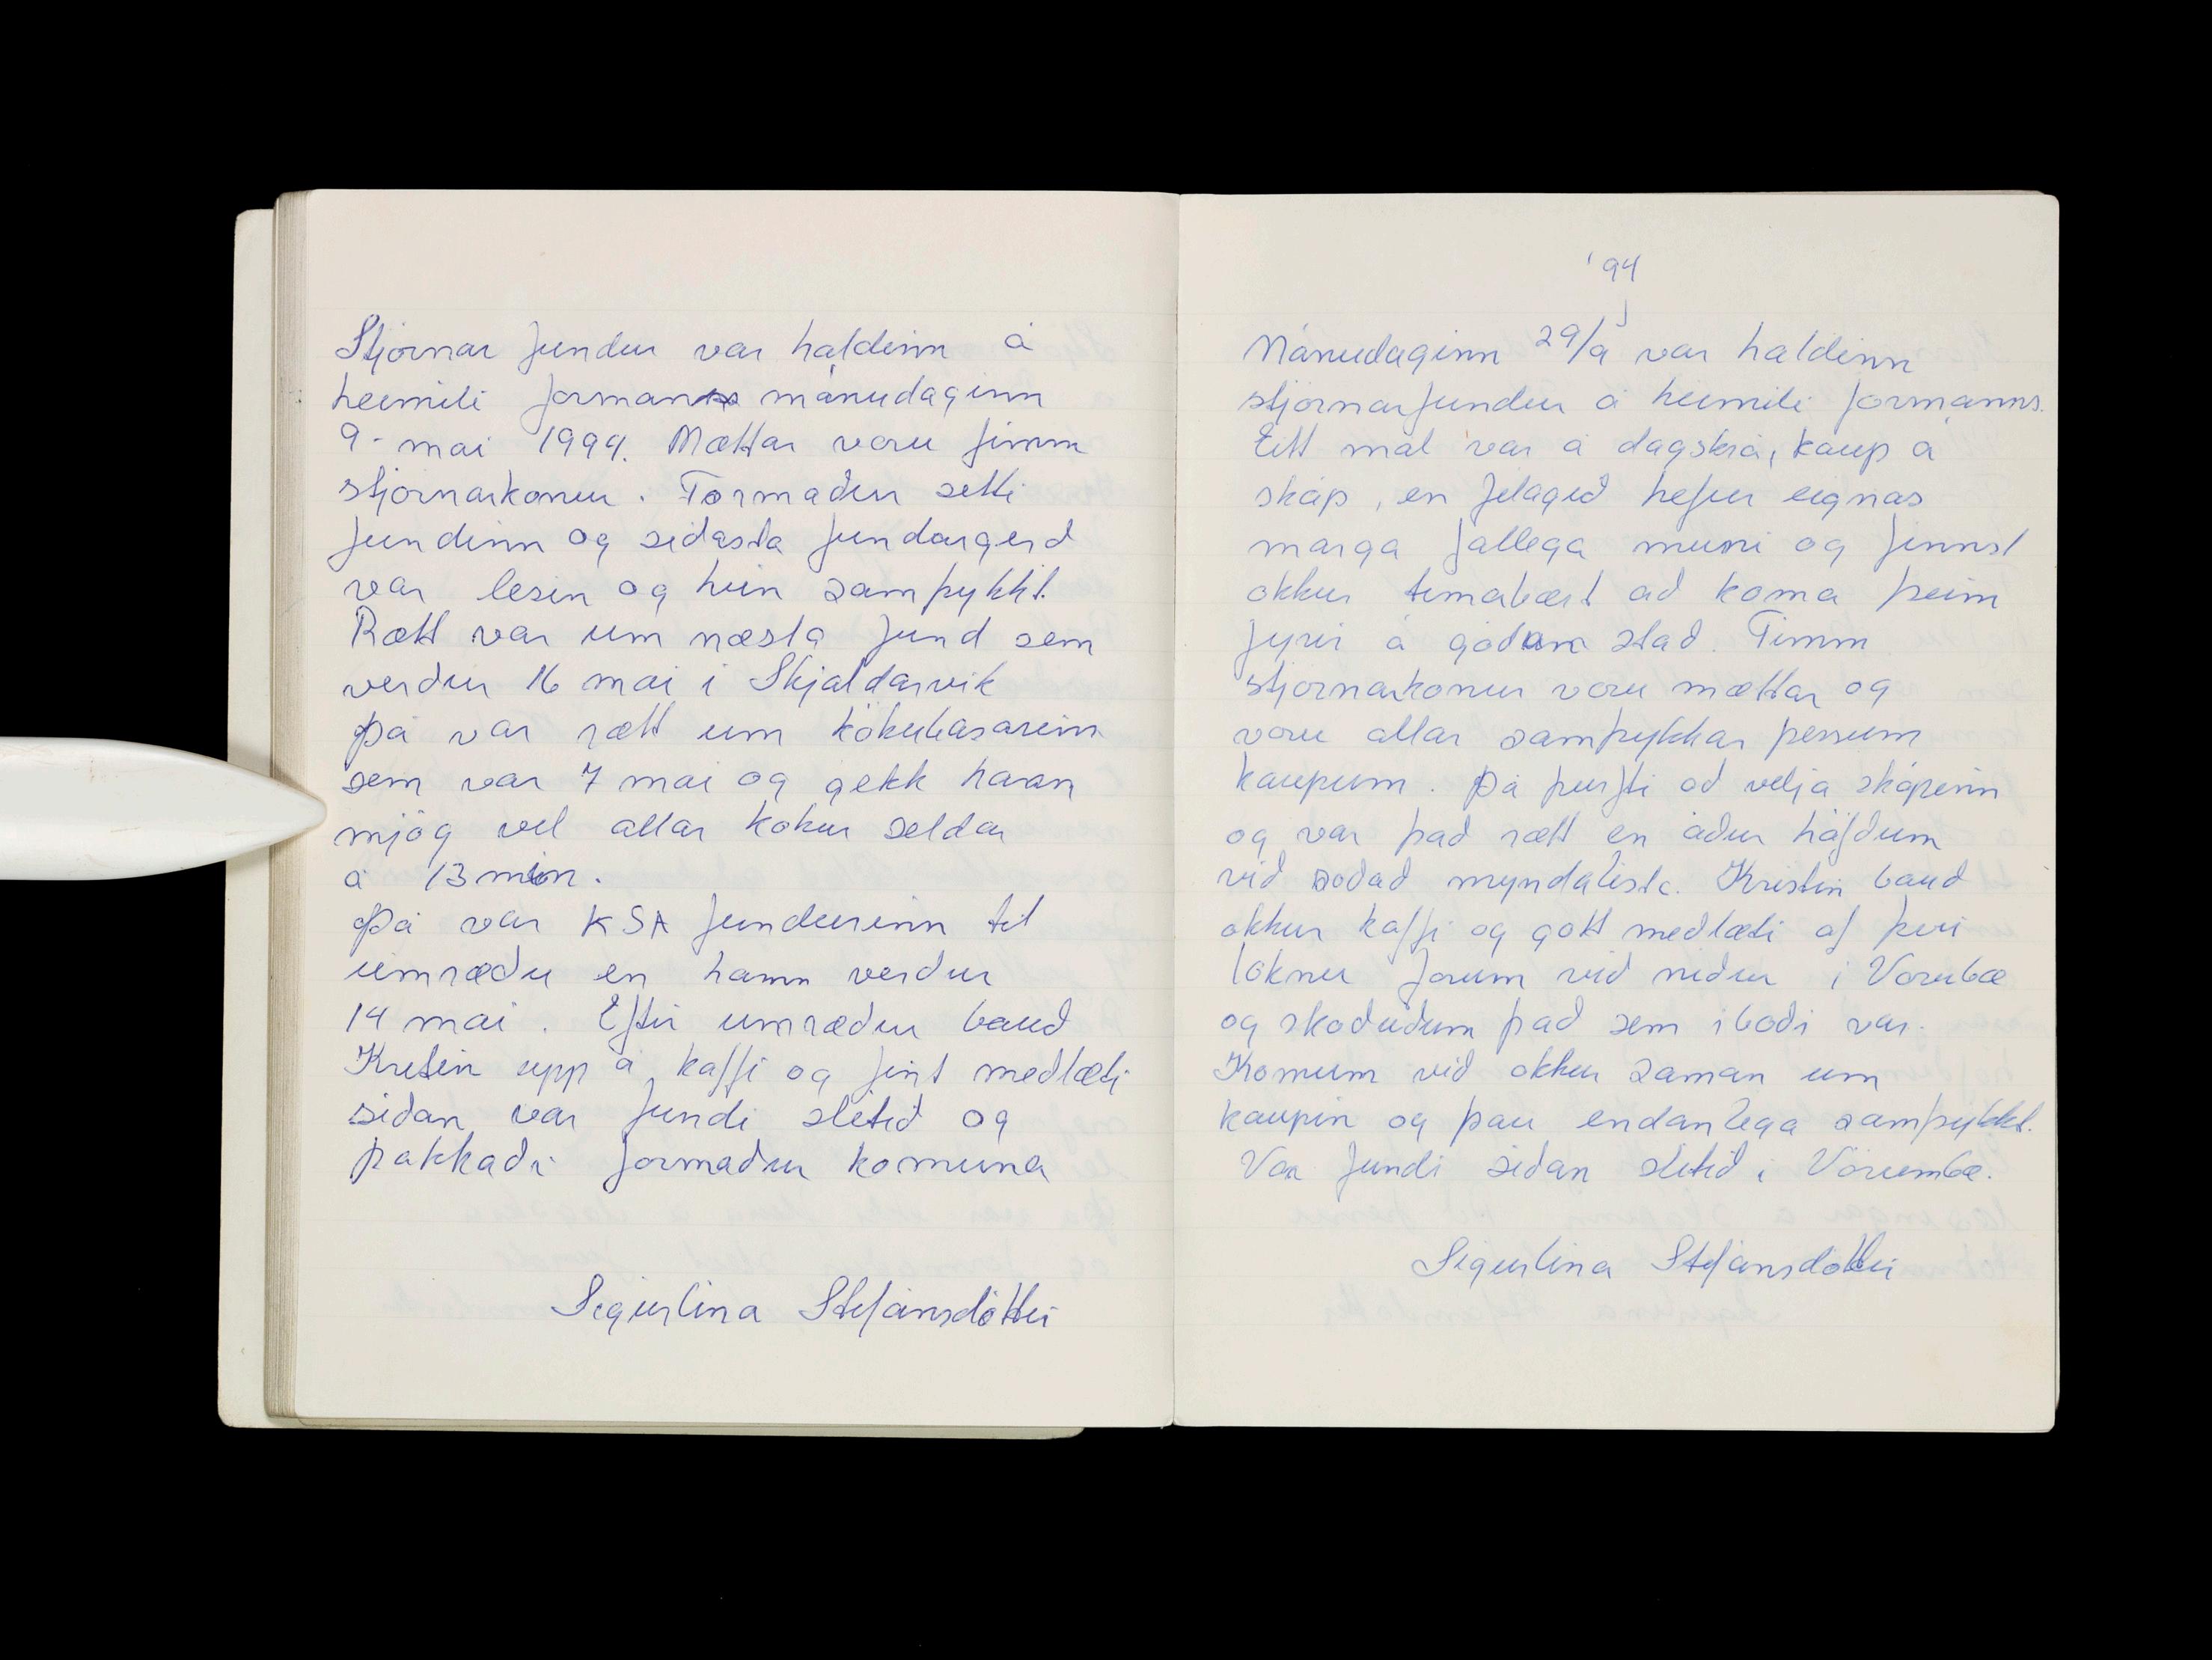 Stjórnar fundur var haldinn á
heimili formanns mánudaginn
9. mai 1994. Mættar voru fimm
stjórnarkonur. Formaður setti
fundinn og siðasta fundargerð
var lesin og hún samþykkt.
Rætt var um næsta fund sem
verður 16 mai i Skjaldarvik
þá var rætt um kökubasarinn
sem var 7 mai og gekk hann
mjög vel allar kökur seldar
á 13 min.
Þá var KSA fundurinn til
umræðu en hann verður
14 mai. Eftir umræður bauð
Kristin upp á kaffi og fint meðlæti
siðan var fundi slitið og
þakkaði formaður komuna
Sigurlina Stefánsdóttir
'94
Mánudaginn 29/a var haldinn
stjórnarfundur á heimili formanns.
Eitt mál var á dagskrá, kaup á
skáp, en felagið hefur eignas
marga fallega muni og finnst
okkur timabært að koma þeim
fyrir á góðum stað. Fimm
stjórnarkonur voru mættar og
voru allar samþykkar þessum
kaupum. Þá þurfti að velja skápinn
og var það rætt en áður höfðum
við soðað myndalista. Kristin bauð
okkur kaffi og gott meðlæti af þvi
loknu forum við niður i Vörubæ
og skoðuðum það sem i boði var.
Komum við okkur saman um
kaupin og þau endanlega samþykkt.
Var fundi siðan slitið i Vörumbæ.
Sigurlina Stefánsdóttir